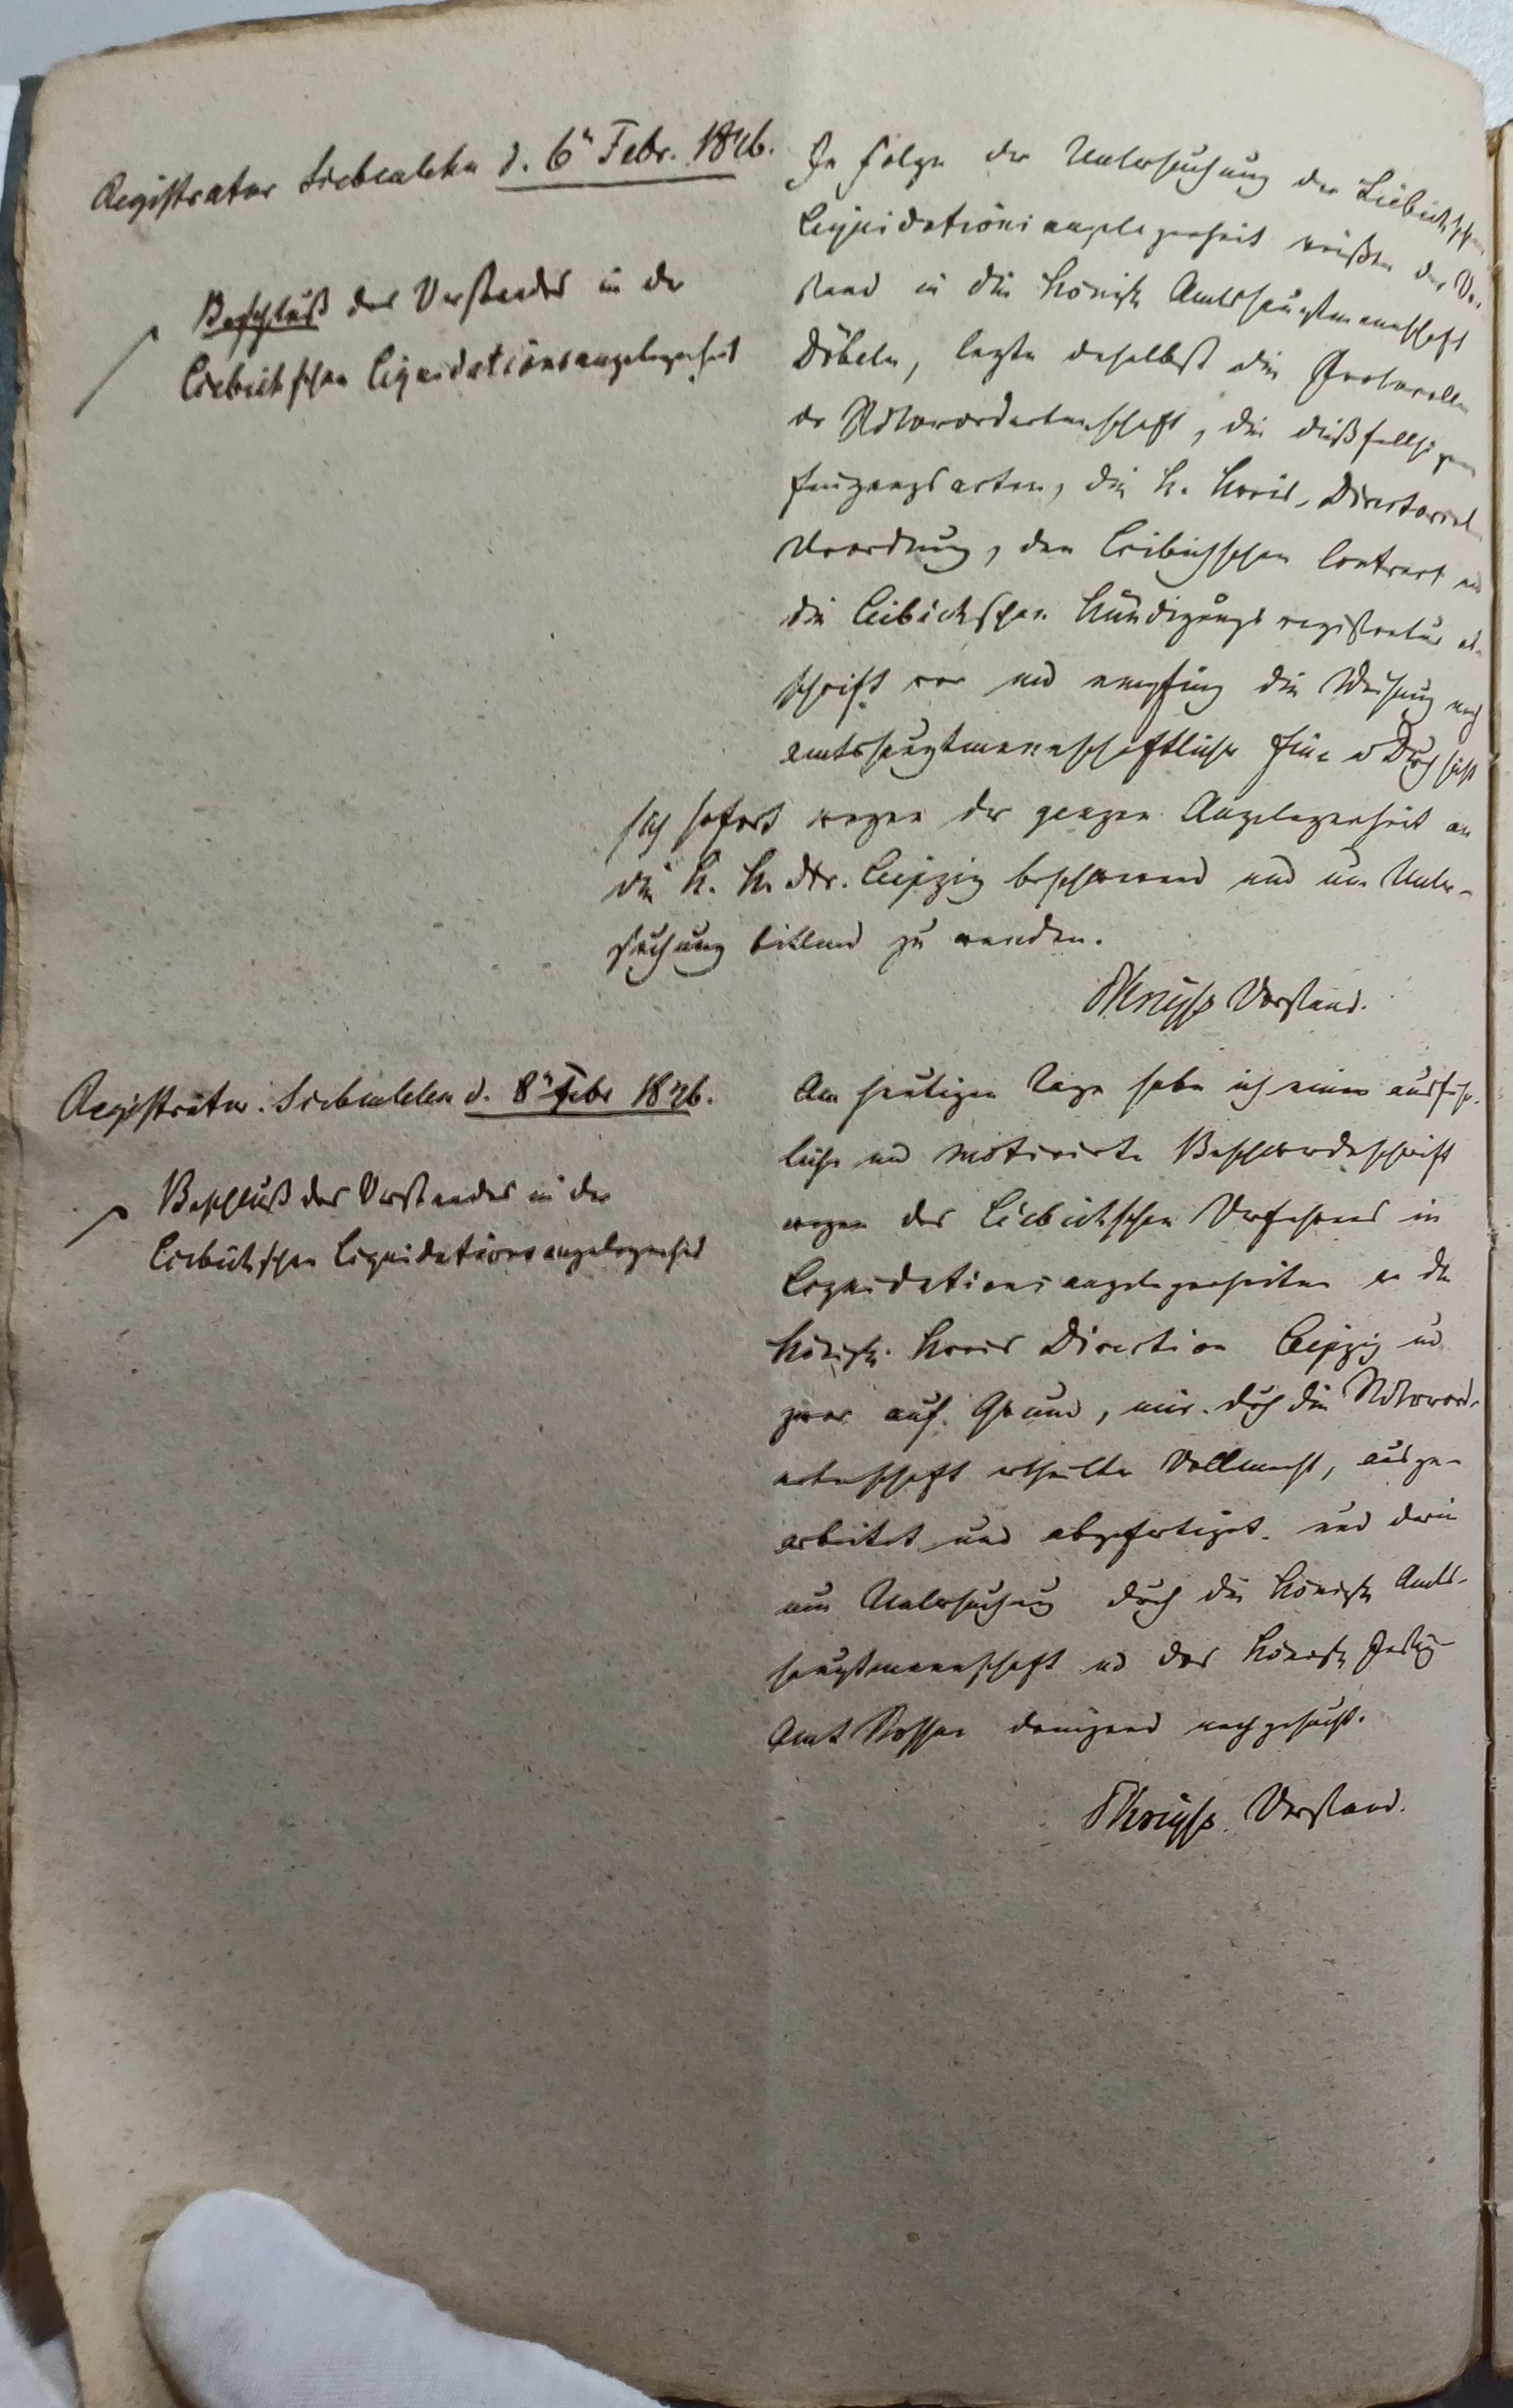 Registratur Siebenlehn d. 6n Febr. 1846.
Beschluß des Vorstandes in der
Liebichschen Liquidationsangelegenheit
In Folge der Untersuchung der Liebichschen
Liquidationsangelegenheit reißte der Vor-
stand in die Königl. Amtshauptmannschaft
Döbeln, legte daselbst die Protocolle
der Stadtverordnetenschaft, die dießfallsigen
Eingangsacten, die K. Kreis-Directorial
Verordnung, den Liebichschen Contract und
die Liebichschen Kündigungsregistratur ab-
schrift vor und empfing die Weisung nach
amtshauptmannschaftlicher Ein- u Durchsicht
sich sofort wegen der ganzen Angelegenheit an
die K. Kr. Dir. Leipzig beschwerend und um Unter-
suchung bittend zu wenden.
Vorstand.
Registratur. Siebenlehn d. 8n Febr 1846.
Beschluß des Vorstandes in der
Liebichschen Liquidationsangelegenheit
Am heutigen Tage habe ich eine ausführ-
liche und motivirte Beschwerdeschrift
wegen des Liebichschen Verfahrens in
Liquidationsangelegenheiten an die
Königl. Kreis Direction Leipzig und
zwar auf Grund, mir durch die Stadtverord-
netenschaft ertheilter Vollmacht, ausge-
arbeitet und abgefertiget und darin
um Untersuchung durch die Königl. Amts-
hauptmannschaft und das Königl. Justiz-
Amt Nossen dringend nachgesucht.
Vorstand.